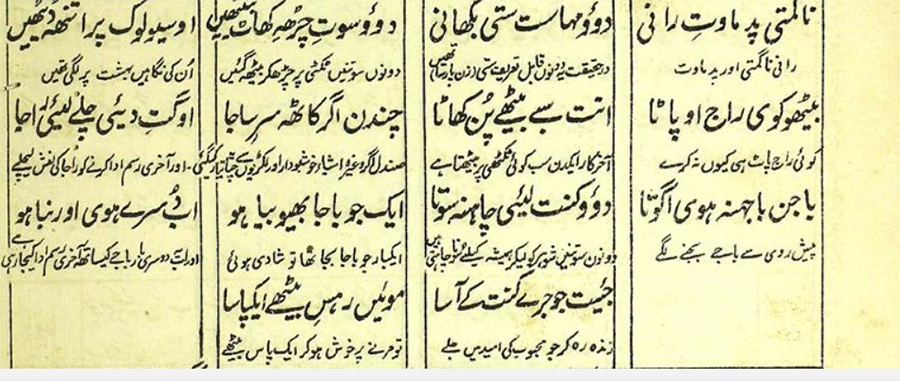 ناگمتی پدماوتِ رانی دوؤ مہاست ستی بکھانی دوؤ سوتِ چڑھِ کھاٹ بیٹھیں او سیولوک پرا تنھہ ڈیٹھیں
رانی ناگمتی اور پدماوت درحقیقت یہ دونوں قابل تعریف ستی (زن پارسا) تھیں دونوں سوتنیں ٹکٹی پر چڑھکر بیٹھ گئیں اُن کی نگاہیں بہشت پر لگی تھیں
بیٹھو کوی راج او پاٹا انت سبے بیٹھے پُن کھاٹا چندن اگر کاٹھہ سر ساجا او گتِ دیئی چلے لیئی راجا
کوئی راج پاٹ ہی کیوں نہ کرے آخرکار ایکدن سب کو ٹکٹھی پر بیٹھنا ہے صندل اگر وغیرہ اشیاء خوشبودار اور لکڑیوں سے چتا تیار کی گئی۔ اور آخری رسم ادا کرنے کو راجا کی نعش لیچلے
باجن باجہنہ ہوی اگوتا دوؤ کنت لیئی چاہنہ سوتا ایک جو باجا بھیو بیاہو اب دُسرے ہوی اور نباہو
پیش روی سے باجے بجنے لگے دونوں سوتنیں شوہر کو لیکر ہمیشہ کیلئے سونا چاہتی ہیں ایکبار جو باجا بجا تھا تو شادی ہوئی اور اب دوسری بار باجے کیساتھ آخری رسم ادا کیجارہی ہے
جیئت جو جرے کنت کے آسا موئیں رہس بیٹھے ایکپاسا
زندہ رہ کر جو محبوب کی امید میں جلے تو مرنے پر خوش ہوکر ایک پاس بیٹھے